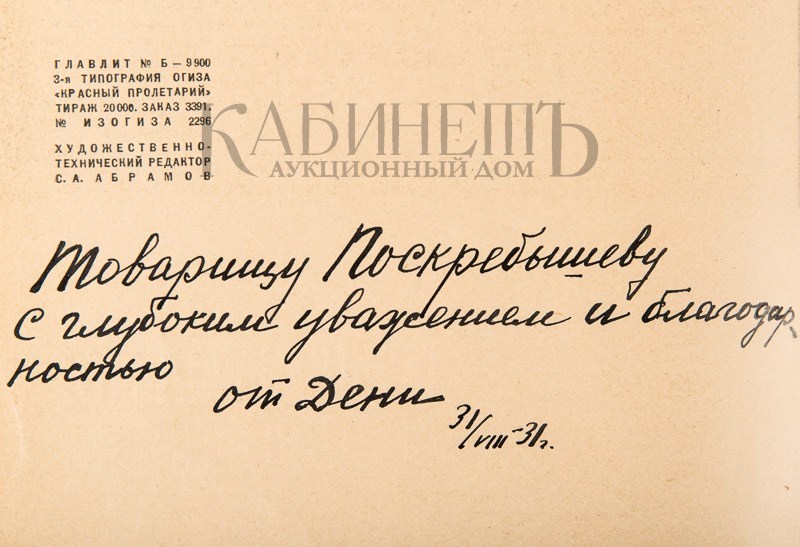 ГЛАВЛИТ № Б — 9900
3-я ТИПОГРАФИЯ ОГИЗА
«КРАСНЫЙ ПРОЛЕТАРИЙ»
ТИРАЖ 20000. ЗАКАЗ 3391.
№ ИЗОГИЗА 2296
ХУДОЖЕСТВЕННО-
ТЕХНИЧЕСКИЙ РЕДАКТОР
С. А. АБРАМОВ
КАБИНЕТЪ
АУКЦИОННЫЙ ДОМ
Товарищу Поскребышеву
с глубоким уважением и благодар-
ностью
от Дени
31/VIII-31г.